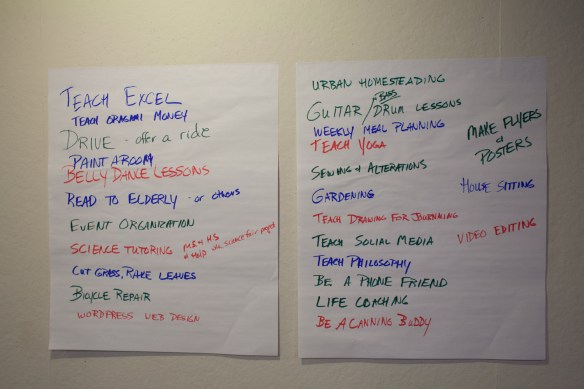 TEACH EXCEL
TEACH ORAGAMI MONEY
DRIVE - offer a ride
PAINT A ROOM
BELLY DANCE LESSONS
READ TO ELDERLY - or others
EVENT ORGANIZATION
SCIENCE TUTORING MS + HS
+ Help w/ science fair project
CUT GRASS, RAKE LEAVES
BICYCLE REPAIR
WORDPRESS WEB DESIGN
URBAN HOMESTEADING
GUITAR / BASS / DRUM LESSONS
WEEKLY MEAL PLANNING
TEACH YOGA
SEWING + ALTERATIONS
GARDENING
TEACH DRAWING FOR JOURNALING
TEACH SOCIAL MEDIA
TEACH PHILOSOPHY
BE A PHONE FRIEND
LIFE COACHING
BE A CANNING BUDDY
MAKE FLYERS
+
POSTERS
HOUSE SITTING
VIDEO EDITING